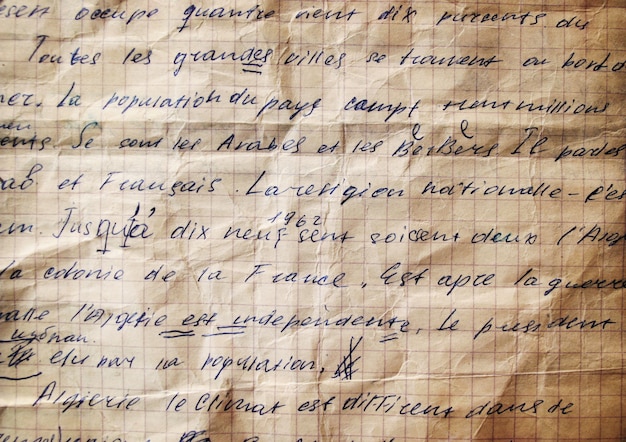 occupe quantre vent dix pursents du
Toutes les grandes villes se trouvent au bord d
mer. La population du pays compt trent millions
Se sont les Arabes et les BerBers Il parles
et Français. La religion nationalle - c'es
1962
Jusqu'à dix neuf sent soicent deux l'Alger
la colonie de la France. Est apre la guerre
l'Algerie est independente. Le president
elu par la population.
Algierie le climat est different dans de